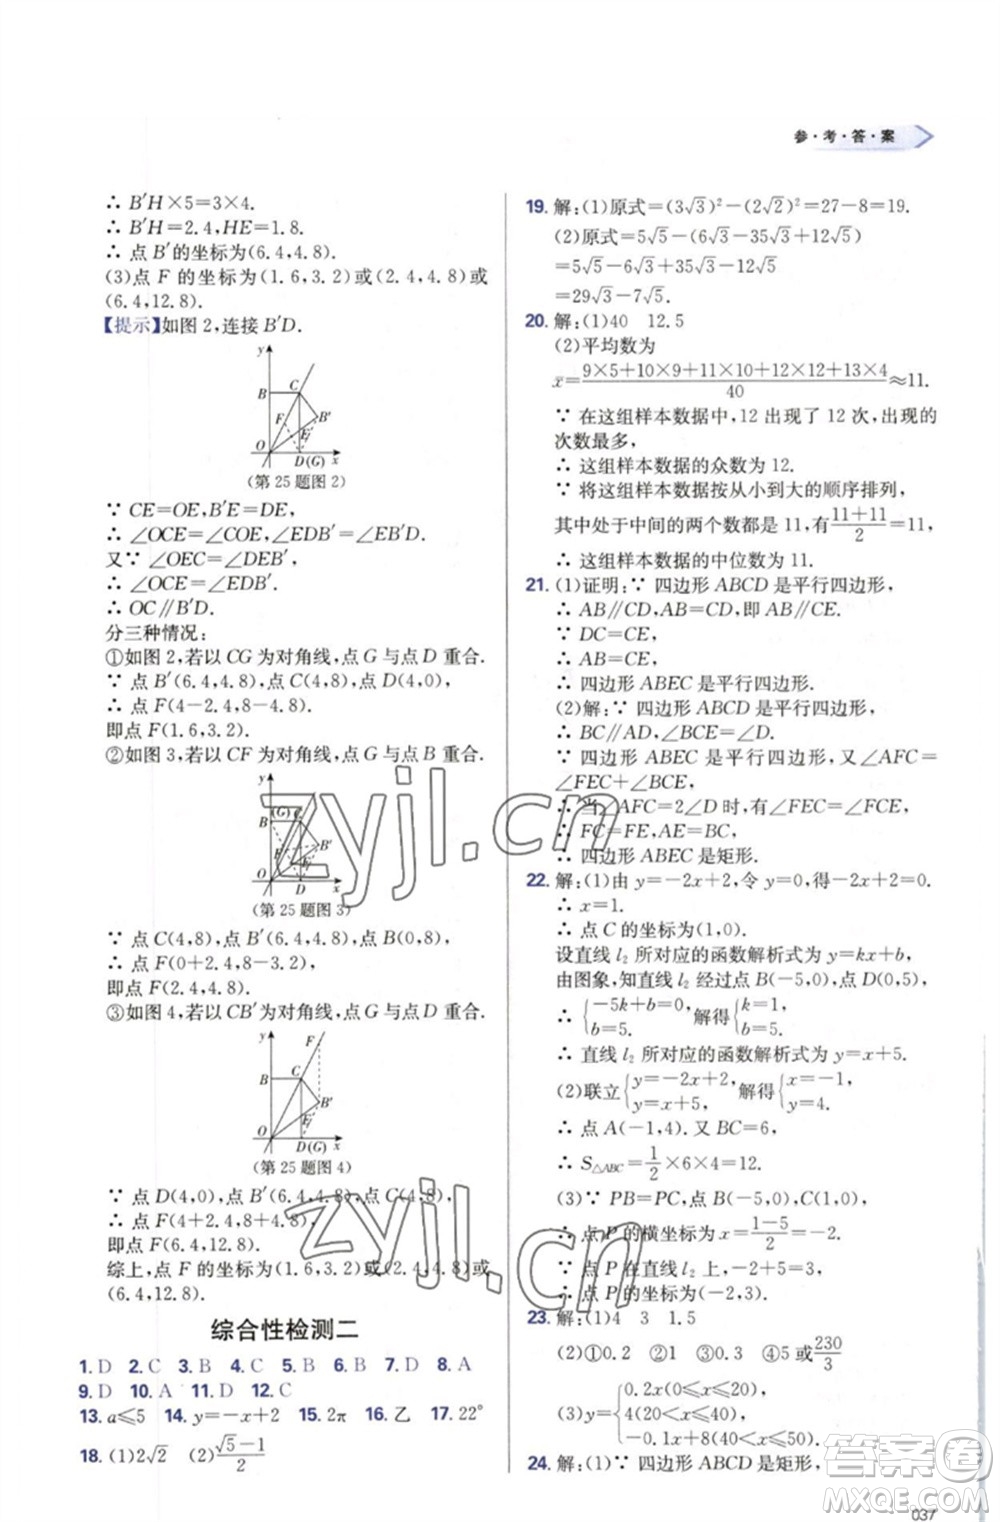 参·考·答·案
∴ B′H×5=3×4.
∴ B′H=2.4,HE=1.8.
∴ 点 B′的坐标为(6.4,4.8).
(3)点 F 的坐标为(1.6,3.2)或(2.4,4.8)或
(6.4,12.8).
【提示】如图 2,连接 B′D.
y
B C
F B′
E
O D(G) x
(第 25 题图 2)
∵ CE=OE,B′E=DE,
∴ ∠OCE=∠COE,∠EDB′=∠EB′D.
又∵ ∠OEC=∠DEB′,
∴ ∠OCE=∠EDB′.
∴ OC∥B′D.
分三种情况:
①如图 2,若以 CG 为对角线,点 G 与点 D 重合.
∵ 点 B′(6.4,4.8),点 C(4,8),点 D(4,0),
∴ 点 F(4-2.4,8-4.8).
即点 F(1.6,3.2).
②如图 3,若以 CF 为对角线,点 G 与点 B 重合.
y
(G) C
B
F B′
E
O D x
(第 25 题图 3)
∵ 点 C(4,8),点 B′(6.4,4.8),点 B(0,8),
∴ 点 F(0+2.4,8-3.2).
即点 F(2.4,4.8).
③如图 4,若以 CB′为对角线,点 G 与点 D 重合.
y F
B C
B′
E
O D(G) x
(第 25 题图 4)
∵ 点 D(4,0),点 B′(6.4,4.8),点 C(4,8),
∴ 点 F(4+2.4,8+4.8).
即点 F(6.4,12.8).
综上,点 F 的坐标为(1.6,3.2)或(2.4,4.8)或
(6.4,12.8).
综合性检测二
1. D 2. C 3. B 4. C 5. B 6. B 7. D 8. A
9. D 10. A 11. D 12. C
13. a≤5 14. y=-x+2 15. 2π 16. 乙 17. 22°
18. (1)2√2 (2)(√5-1)/2
19. 解:(1)原式=(3√3)²-(2√2)²=27-8=19.
(2)原式=5√5-6√3-(2√5-35√3+12√5)
=5√5-6√5+35√3-12√5
=29√3-13√5.
20. 解:(1)40 12.5
(2)平均数为
x̄=(9×5+10×9+11×10+12×12+13×4)/40≈11.
∵ 在这组样本数据中,12 出现了 12 次,出现的
次数最多,
∴ 这组样本数据的众数为 12.
∵ 将这组样本数据按从小到大的顺序排列,
其中处于中间的两个数都是 11,有(11+11)/2=11,
∴ 这组样本数据的中位数为 11.
21. (1)证明:∵ 四边形 ABCD 是平行四边形,
∴ AB∥CD,AB=CD,即 AB∥CE.
∵ DC=CE,
∴ AB=CE,
∴ 四边形 ABEC 是平行四边形.
(2)解:∵ 四边形 ABCD 是平行四边形,
∴ BC∥AD,∠BCE=∠D.
∵ 四边形 ABEC 是平行四边形,又∠AFC=
∠FEC+∠BCE,
∴ 当∠AFC=2∠D 时,有∠FEC=∠FCE,
∴ FC=FE,AE=BC,
∴ 四边形 ABEC 是矩形.
22. 解:(1)由 y=-2x+2,令 y=0,得-2x+2=0.
∴ x=1.
∴ 点 C 的坐标为(1,0).
设直线 l₂ 所对应的函数解析式为 y=kx+b,
由图象,知直线 l₂ 经过点 B(-5,0),点 D(0,5),
∴ {-5k+b=0, b=5. 解得{k=1, b=5.
∴ 直线 l₂ 所对应的函数解析式为 y=x+5.
(2)联立{y=-2x+2, y=x+5, 解得{x=-1, y=4.
∴ 点 A(-1,4).又 BC=6,
∴ S△ABC=1/2×6×4=12.
(3)∵ PB=PC,点 B(-5,0),点 C(1,0),
∴ 点 P 的横坐标为 x=(1-5)/2=-2.
∵ 点 P 在直线 l₂ 上,-2+5=3,
∴ 点 P 的坐标为(-2,3).
23. 解:(1)4 3 1.5
(2)①0.2 ②50 ③0.3 ④5 或230/3
(3)y={0.2x(0≤x≤20), 4(20<x≤40), -0.1x+8(40<x≤50).
24. 解:(1)∵ 四边形 ABCD 是矩形,
037
zyjl.cn
zyjl.cn
答案圈
MXQE.COM